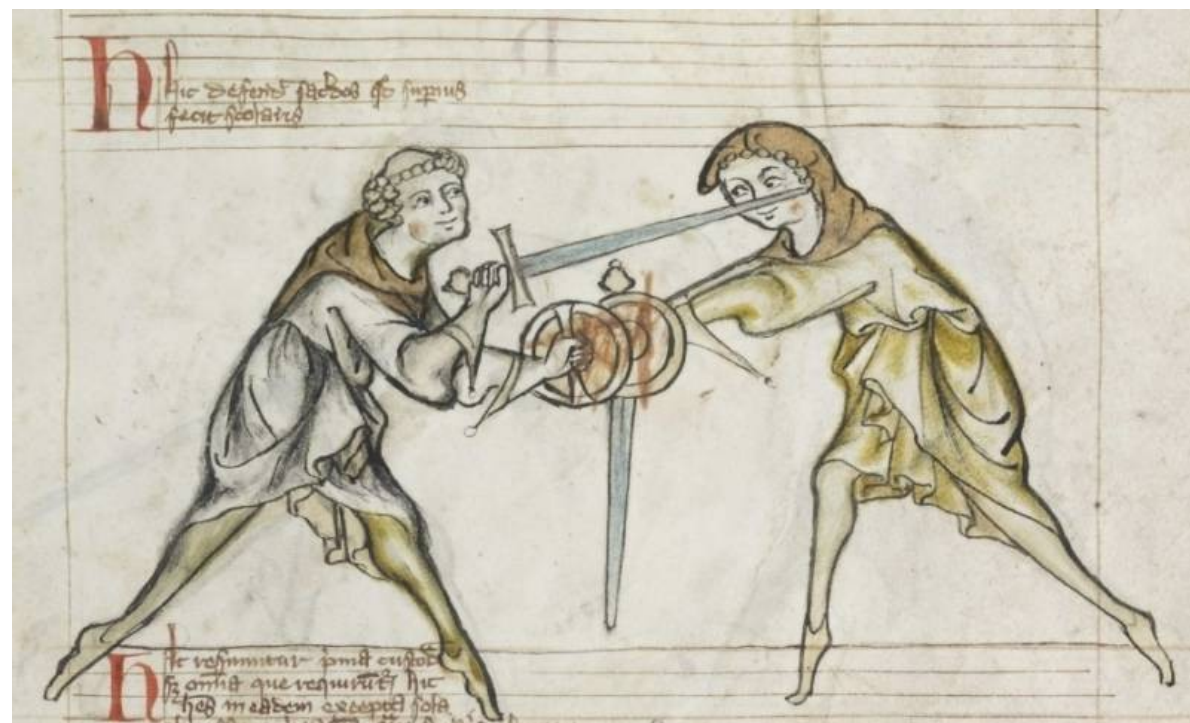 Hic defend sacdos qd supius
fecit scolaris
Hic resumitur pima custod
sz omia que requirunt hic
hes in eadem excepta sola